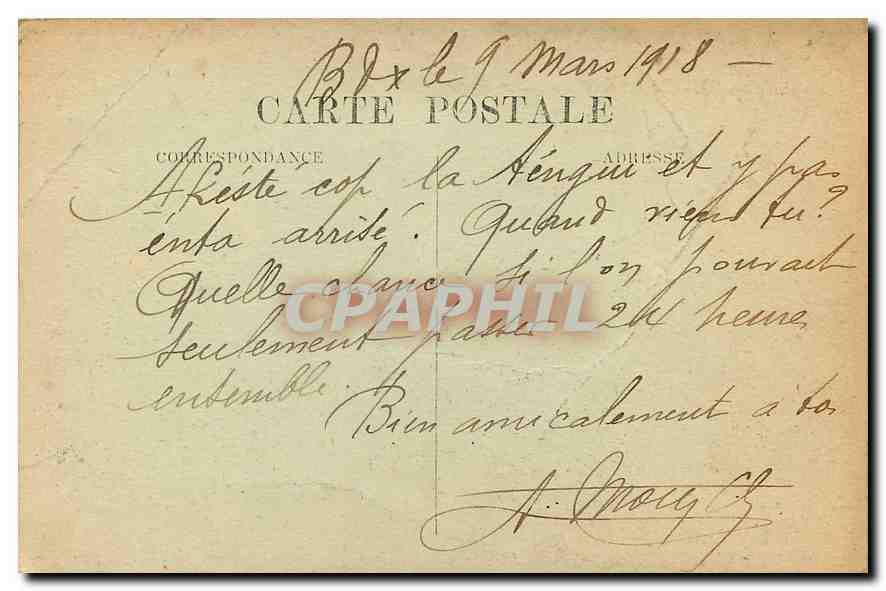 Bdx le 9 Mars 1918 -
CARTE POSTALE
CORRESPONDANCE
ADRESSE
cop la et y pas
énta arrisé. Quand viens tu?
Quelle chance si l'on pourait
seulement passer 24 heures
ensemble.
Bien amicalement à toi
A.
CPAPHIL